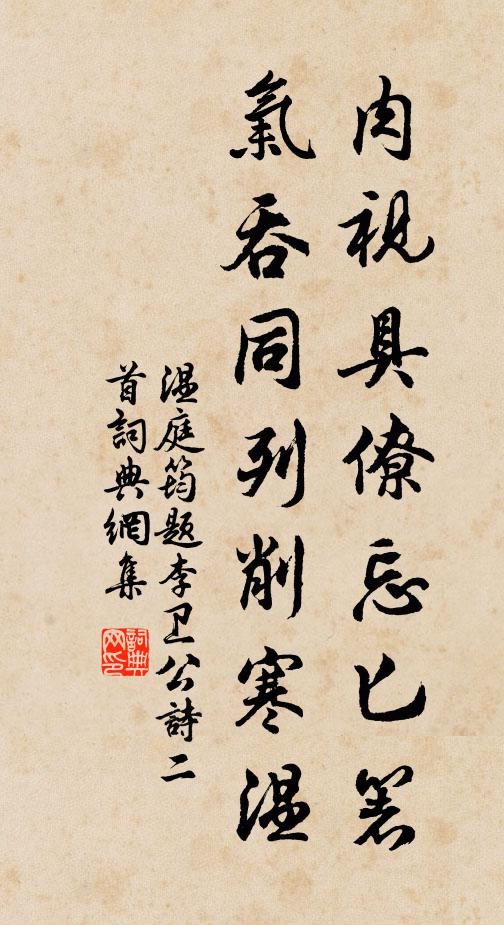 肉視具僚忘匕箸
氣吞同列削寒溫
溫庭筠題李卫公詩二
首詞典網集
詞典
网印